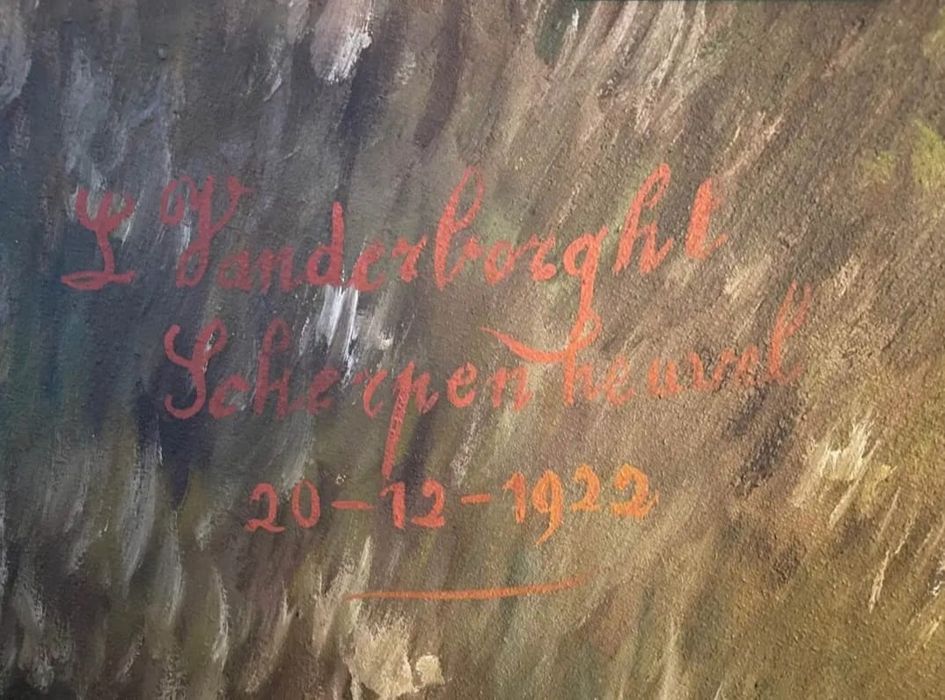 L Vanderborght
Scherpenheuvel
20-12-1922